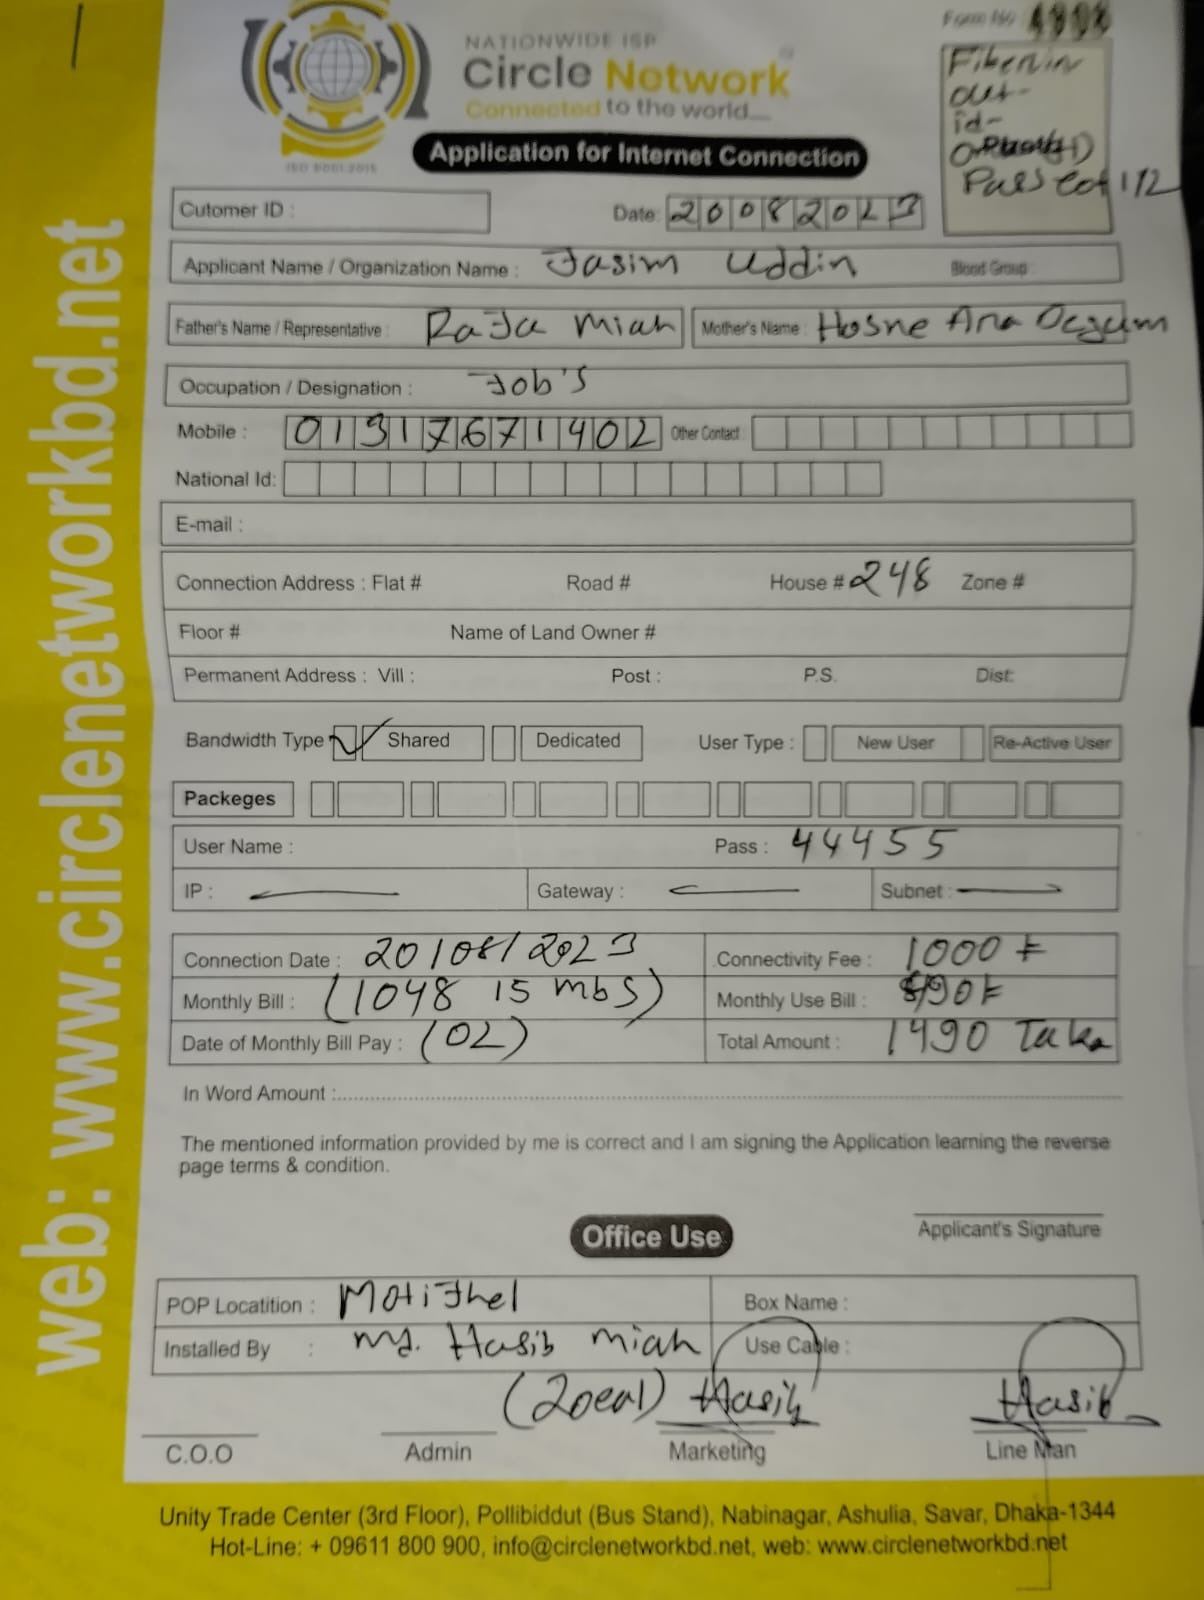 Form No
NATIONWIDE ISP
Circle Network
Connected to the world....
ISO 9001:2015
Application for Internet Connection
out-
id-
Cutomer ID :
Date: 20082023
Applicant Name / Organization Name : Jasim Uddin Blood Group :
Father's Name / Representative : RaJa Miah Mother's Name : Hosne Ara
Occupation / Designation : Job's
Mobile : 01317671402 Other Contact :
National Id:
E-mail :
Connection Address : Flat # Road # House # 248 Zone #
Floor # Name of Land Owner #
Permanent Address : Vill : Post : P.S. Dist:
Bandwidth Type Shared Dedicated User Type : New User Re-Active User
Packeges
User Name : Pass : 44455
IP : Gateway : Subnet :
Connection Date : 20/08/2023 Connectivity Fee : 1000 ৳
Monthly Bill : (1048 15 mbs) Monthly Use Bill : 490৳
Date of Monthly Bill Pay : (02) Total Amount : 1490 Taka
In Word Amount :
The mentioned information provided by me is correct and I am signing the Application learning the reverse
page terms & condition.
Applicant's Signature
Office Use
POP Locatition : MotiJhel Box Name :
Installed By : Md. Hasib Miah Use Cable :
Hasib Hasib
C.O.O Admin Marketing Line Man
Unity Trade Center (3rd Floor), Pollibiddut (Bus Stand), Nabinagar, Ashulia, Savar, Dhaka-1344
Hot-Line: + 09611 800 900, info@circlenetworkbd.net, web: www.circlenetworkbd.net
web: www.circlenetworkbd.net